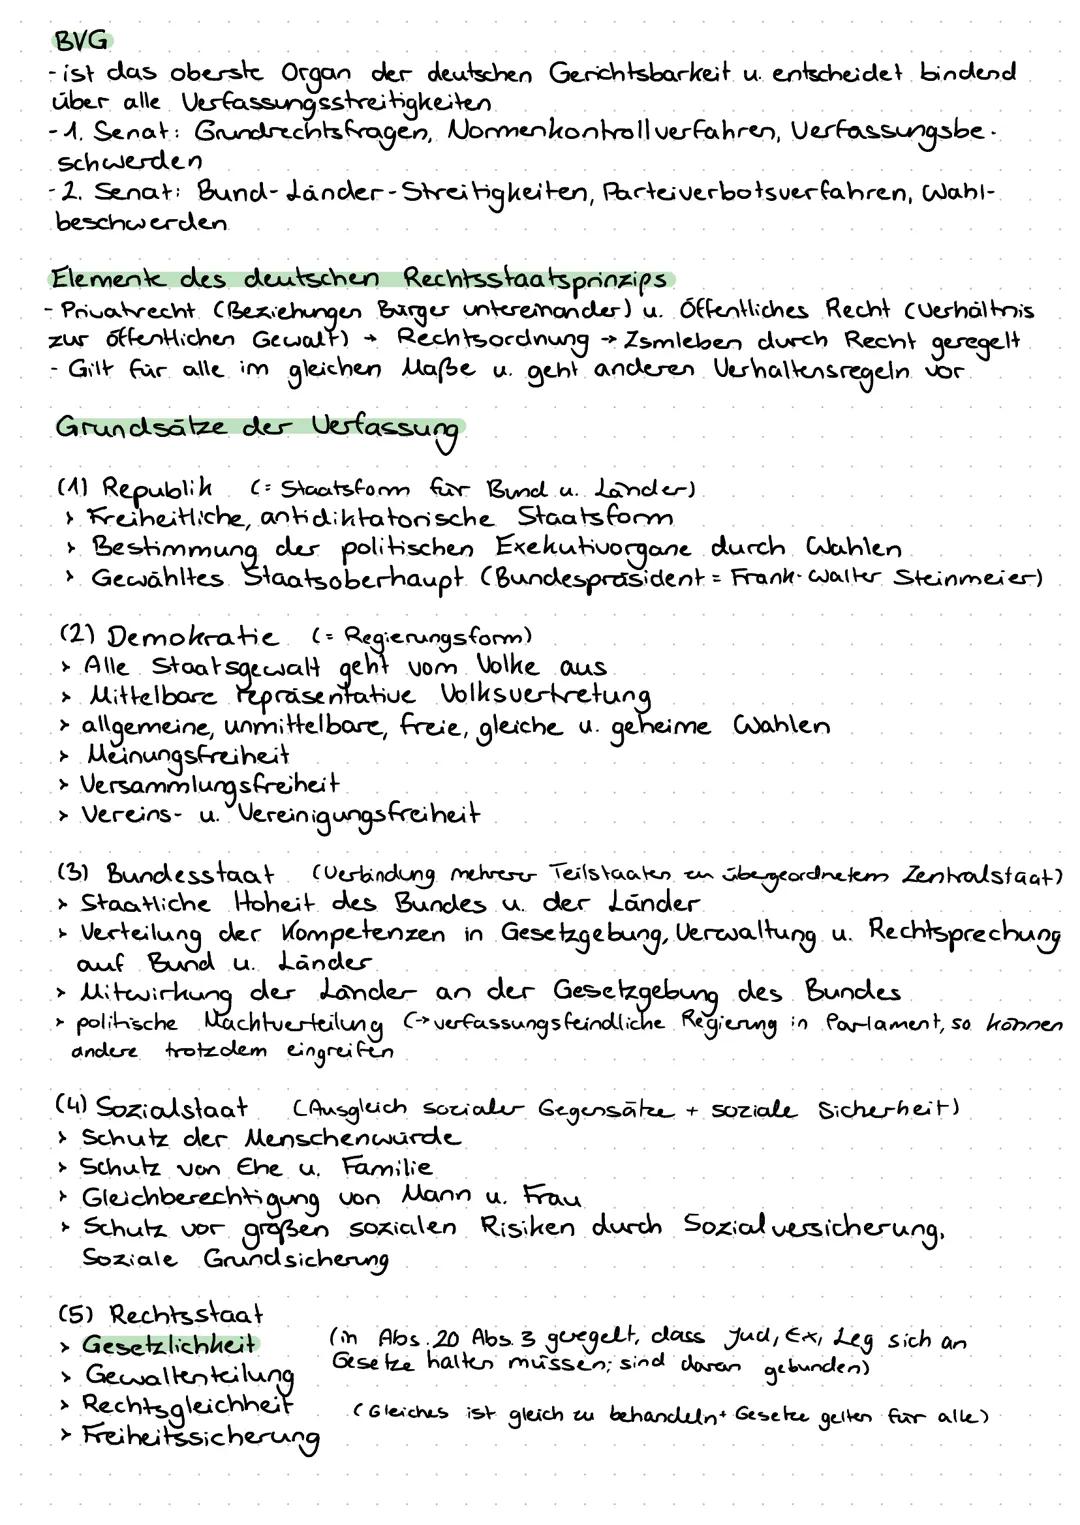 BVG
- ist das oberste Organ der deutschen Gerichtsbarkeit u. entscheidet bindend
über alle Verfassungsstreitigkeiten
- 1. Senat: Grundrechtsfragen, Normenkontrollverfahren, Verfassungsbe-
schwerden
- 2. Senat: Bund-Länder-Streitigkeiten, Parteiverbotsverfahren, Wahl-
beschwerden
Elemente des deutschen Rechtsstaatsprinzips
- Privatrecht (Beziehungen Bürger untereinander) u. Öffentliches Recht (Verhältnis
zur öffentlichen Gewalt) → Rechtsordnung → Zsmleben durch Recht geregelt
- Gilt für alle im gleichen Maße u. geht anderen Verhaltensregeln vor
Grundsätze der Verfassung
(1) Republik (= Staatsform für Bund u. Länder)
> Freiheitliche, antidiktatorische Staatsform
> Bestimmung der politischen Exekutivorgane durch Wahlen
> Gewähltes Staatsoberhaupt (Bundespräsident = Frank-Walter Steinmeier)
(2) Demokratie (= Regierungsform)
> Alle Staatsgewalt geht vom Volke aus
> Mittelbare repräsentative Volksvertretung
> allgemeine, unmittelbare, freie, gleiche u. geheime Wahlen
> Meinungsfreiheit
> Versammlungsfreiheit
> Vereins- u. Vereinigungsfreiheit
(3) Bundesstaat (Verbindung mehrerer Teilstaaten zu übergeordnetem Zentralstaat)
> Staatliche Hoheit des Bundes u. der Länder
> Verteilung der Kompetenzen in Gesetzgebung, Verwaltung u. Rechtsprechung
auf Bund u. Länder
> Mitwirkung der Länder an der Gesetzgebung des Bundes
> politische Machtverteilung (→ verfassungsfeindliche Regierung in Parlament, so können
andere trotzdem eingreifen
(4) Sozialstaat (Ausgleich sozialer Gegensätze + soziale Sicherheit)
> Schutz der Menschenwürde
> Schutz von Ehe u. Familie
> Gleichberechtigung von Mann u. Frau
> Schutz vor großen sozialen Risiken durch Sozialversicherung,
Soziale Grundsicherung
(5) Rechtsstaat
> Gesetzlichkeit (in Abs. 20 Abs. 3 geregelt, dass Jud, Ex, Leg sich an
Gesetze halten müssen; sind daran gebunden)
> Gewaltenteilung
> Rechtsgleichheit (Gleiches ist gleich zu behandeln + Gesetze gelten für alle)
> Freiheitssicherung